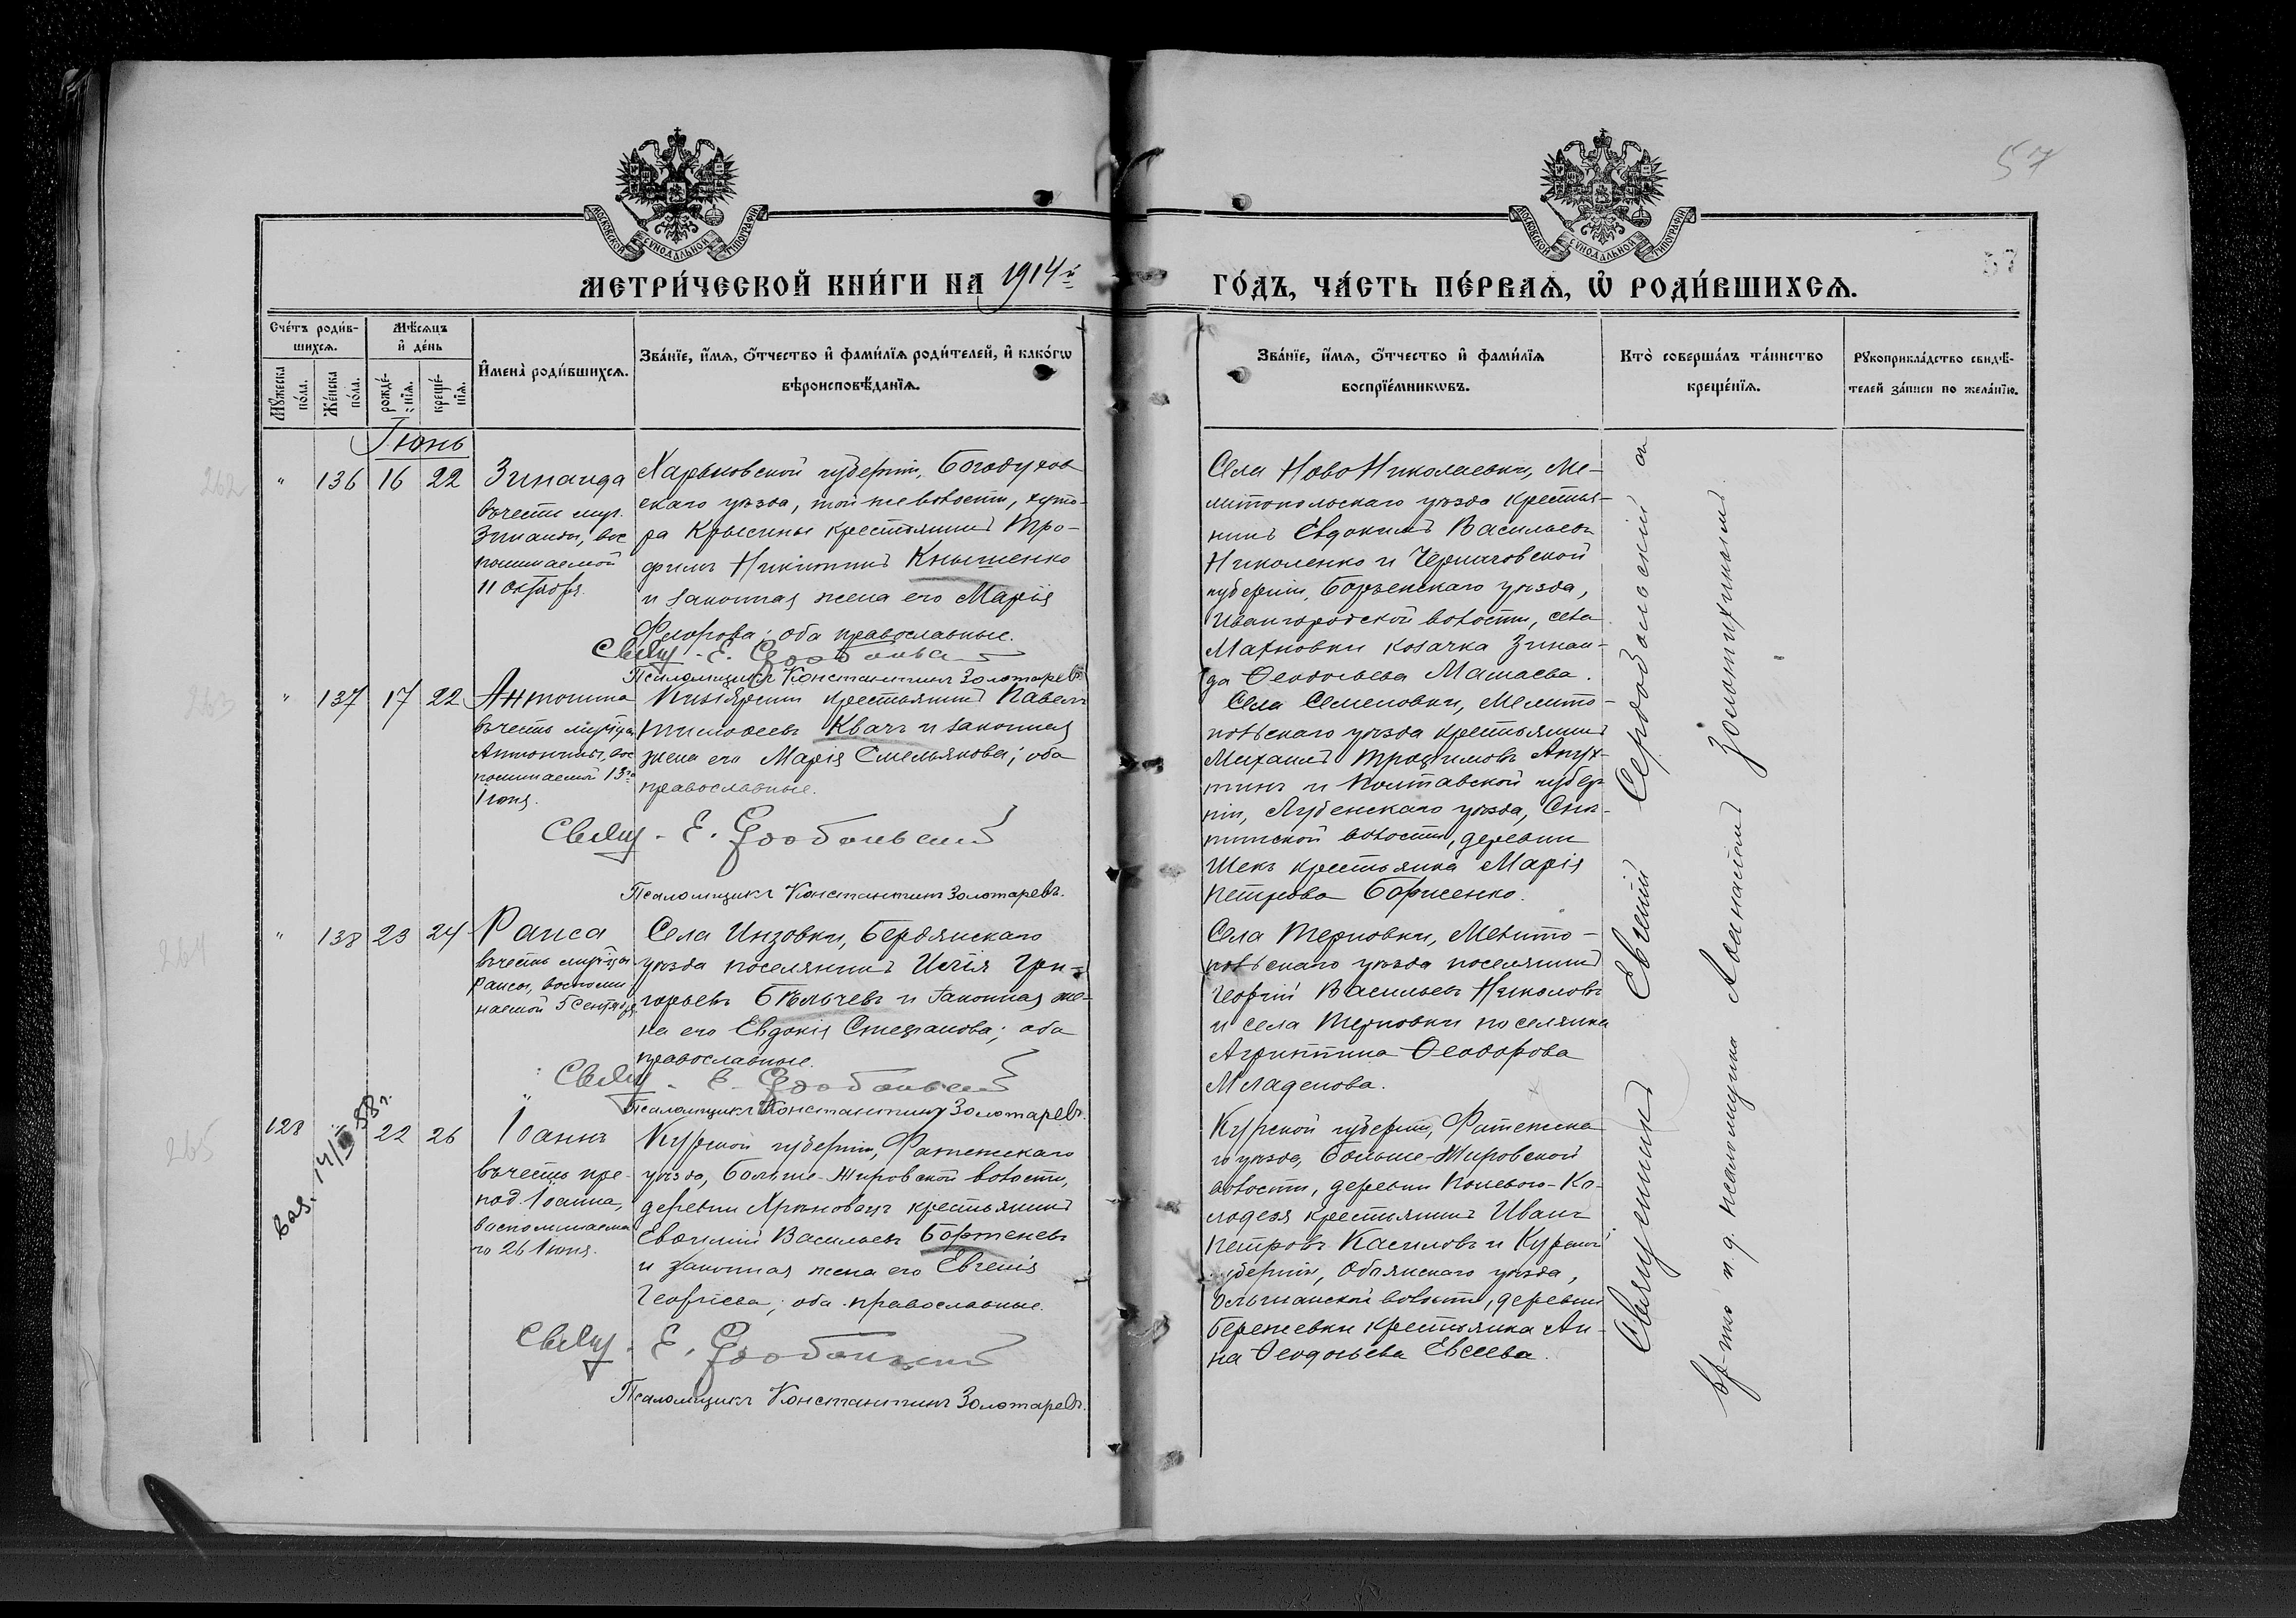 57
МОСКОВСКОЙ СѴНОДАЛЬНОЙ ТИПОГРАФІИ
МОСКОВСКОЙ СѴНОДАЛЬНОЙ ТИПОГРАФІИ
МЕТРИ́ЧЕСКОЙ КНИ́ГИ НА 1914й
ГО́ДЪ, ЧА́СТЬ ПЕ́РВАѦ, Ѡ҆ РОДИ́ВШИХСѦ.
57
Сче́тъ роди́в-
шихсѧ.
Мѣ́сѧцъ
и҆ де́нь
Мꙋ́жеска
по́ла.
Же́нска
по́ла.
рожде́-
нїѧ.
креще́-
нїѧ.
И҆мена̀ роди́вшихсѧ.
Зва́нїе, и҆́мѧ, ѻ҆́тчество и҆ фами́лїѧ роди́телей, и҆ како́гѡ
вѣроисповѣ́данїѧ.
Зва́нїе, и҆́мѧ, ѻ҆́тчество и҆ фами́лїѧ
воспрїе́мникѡвъ.
Кто̀ соверша́лъ та́инство
креще́нїѧ.
Рꙋкоприкла́дство свидѣ́-
телей за́писи по жела́нїю.
Іюнь
262
" 136 16 22
Зинаида
въ честь муч.
Зинаиды, вос
поминаемой
11 октября.
Харьковской губерніи, Богодухов
скаго уѣзда, той же волости, хуто-
ра Крысины крестьянинъ Тро-
фимъ Никитинъ Кнышенко
и законная жена его Марія
Флорова; оба православные.
Свящ. Е. Сердобольскій
Псаломщикъ Константинъ Золотаревъ
Села НовоНиколаевки, Ме-
литопольскаго уѣзда крестья-
нинъ Евдокимъ Васильевъ
Николенко и Черниговской
губерніи, Борзенскаго уѣзда,
Ивангородской волости, села
Махновки козачка Зинаи-
да Ѳеодосьева Мамаева.
263
" 137 17 22
Антонина
въ честь муч-цы
Антонины, вос
поминаемой 13го
Іюня.
крестьянинъ Павелъ
Тимоѳеевъ Квачъ и законная
жена его Марія Емельянова; оба
православные.
Свящ. Е. Сердобольскій
Псаломщикъ Константинъ Золотаревъ.
Села Семеновки, Мелито-
польскаго уѣзда крестьянинъ
Михаилъ Трофимовъ Апух-
тинъ и Полтавской губер
ніи, Лубенскаго уѣзда, Сня-
тинской волости, деревни
Шекъ крестьянка Марія
Петрова Борисенко.
264
" 138 23 24
Раиса
въ честь муч-цы
Раисы, воспоми
наемой 5 Сентября.
Села Инзовки, Бердянскаго
уѣзда поселянинъ Илія Гри-
горьевъ Бѣльчевъ и законная же-
на его Евдокія Стефанова; оба
православные.
Свящ. Е. Сердобольскій
Псаломщикъ Константинъ Золотаревъ.
Села Терновки, Мелито-
польскаго уѣзда поселянинъ
Георгій Васильевъ Николовъ
и села Терновки поселянка
Агриппина Ѳеодорова
Младенова.
265
128 " 22 26
Іоаннъ
въ честь пре-
под. Іоанна,
воспоминаема
го 26 Іюня.
Курской губерніи, Фатежскаго
уѣзда, Больше-Жировской волости,
деревни крестьянинъ
Евѳимій Васильевъ Бортеневъ
и законная жена его Евгенія
Георгіева; оба православные.
Свящ. Е. Сердобольскій
Псаломщикъ Константинъ Золотаревъ.
Курской губерніи, Фатежска
го уѣзда, Больше-Жировской
волости, деревни Полевого-Ко-
лодезя крестьянинъ Иванъ
Петровъ Касиловъ и Курской
губерніи, Обоянскаго уѣзда,
Ольшанской волости, деревни
Бережевки крестьянка Ан-
на Ѳеодосьева Евсеева.
Священникъ Евгеній Сердобольскій съ
и. д. псаломщика Аѳанасіемъ Золотихинымъ